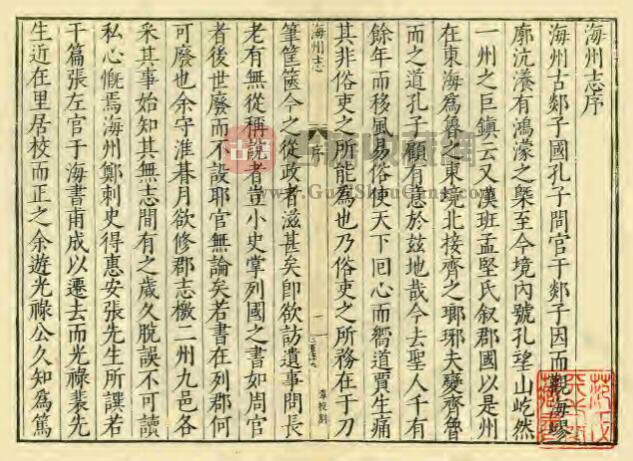 海州志序
海州古郯子國孔子問官于郯子因而觀海暘
廓沆瀁有鴻濛之槩至今境內號孔望山屹然
一州之巨鎮云又漢班孟堅氏叙郡國以是州
在東海爲魯之東境北接齊之瑯琊夫變齊魯
而之道孔子顧有意於玆地哉今去聖人千有
餘年而移風易俗使天下回心而嚮道賈生痛
其非俗吏之所能爲也乃俗吏之所務在于刀
海州志
序
一
筆筐篋今之從政者滋甚矣卽欲訪遺事問長
老有無從稱說者豈小史掌列國之書如周官
者後世廢而不設耶官無論矣若書在列郡何
可廢也余守淮朞月欲修郡志檄二州九邑各
采其事始知其無志間有之歲久脫誤不可讀
私心慨焉海州鄭刺史得惠安張先生所譔若
干篇張左官于海書甫成以遷去而光祿裴先
生近在里居校而正之余遊光祿公久知爲篤